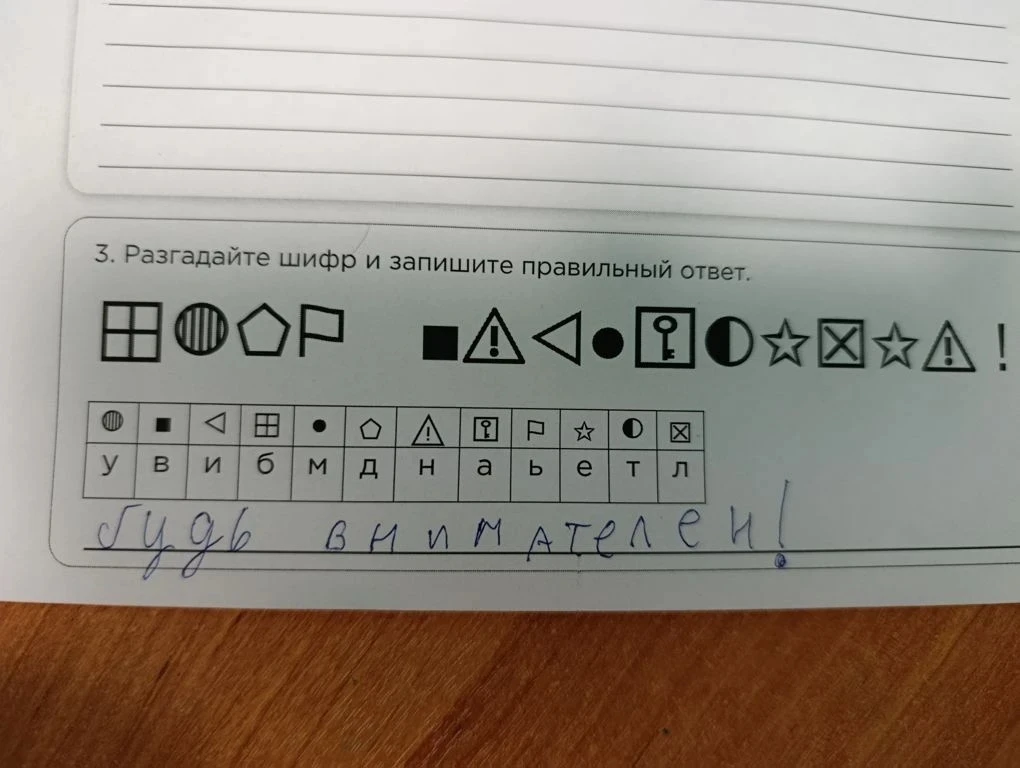 3. Разгадайте шифр и запишите правильный ответ.
!
у в и б м д н а ь е т л
будь внимателен!